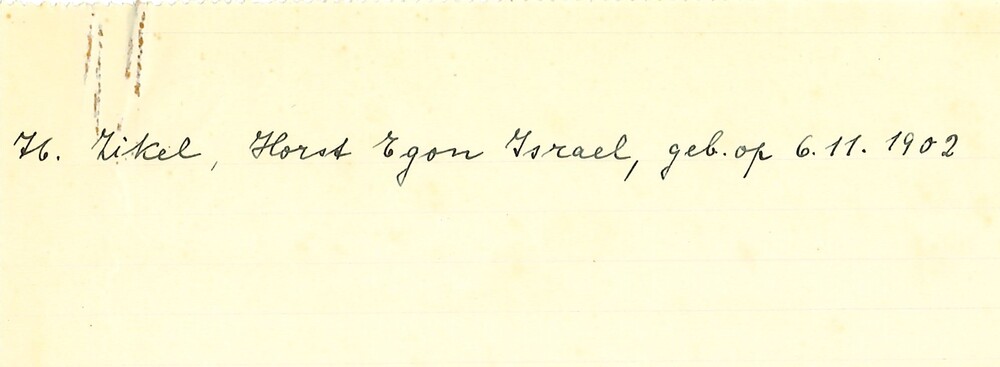 76. Zikel, Horst Egon Israel, geb. op 6.11.1902